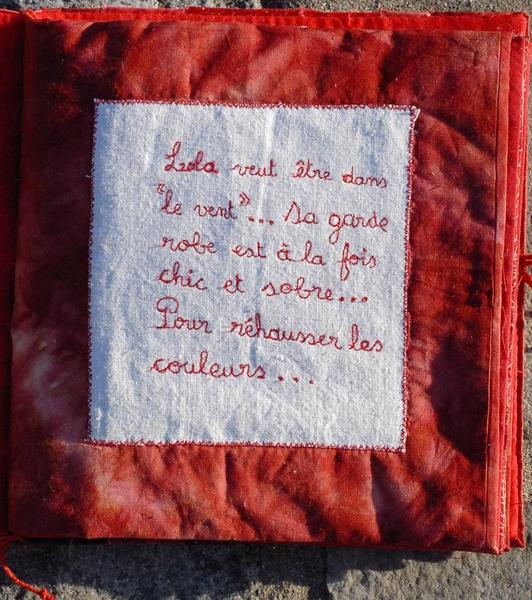 Lola veut être dans
"le vent"... sa garde
robe est à la fois
chic et sobre...
Pour réhausser les
couleurs...